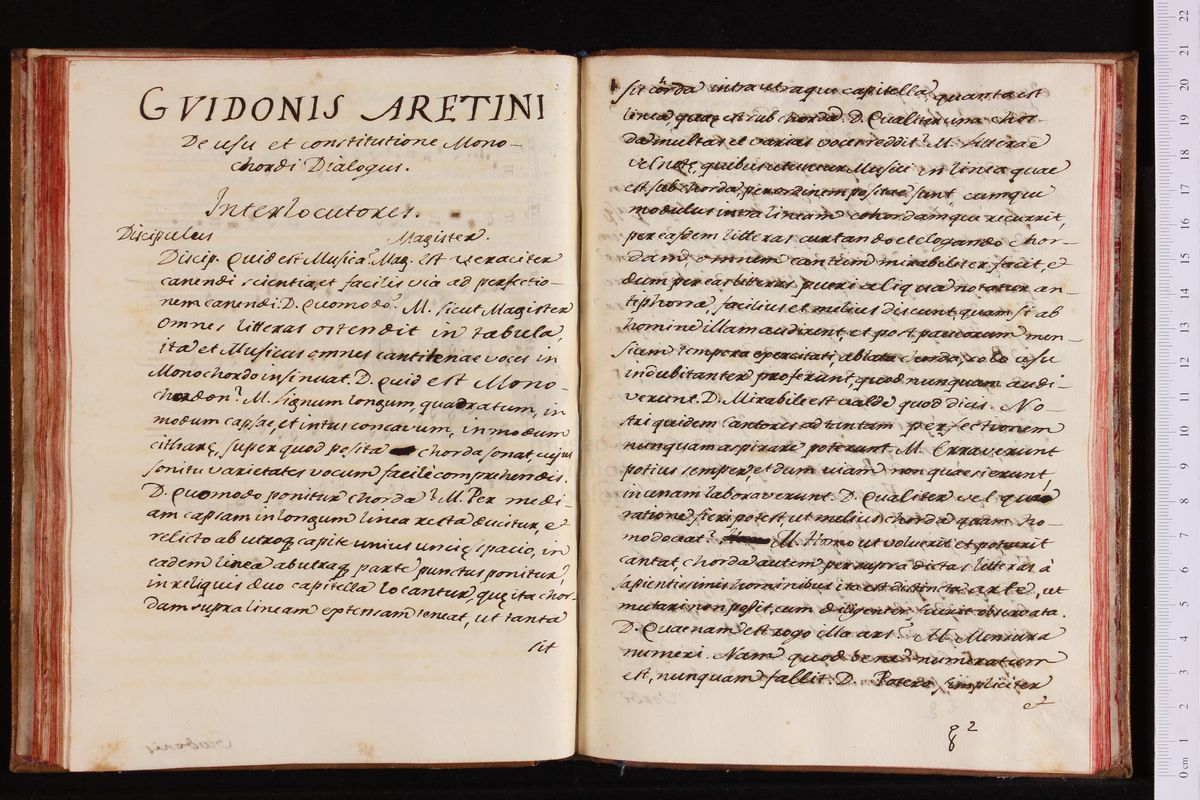 GVIDONIS ARETINI
De usu et constitutione Mono-
chordi Dialogus.
Interlocutores.
Discipulus Magister.
Discip. Quid est Musica? Mag. Est veraciter
canendi scientia, et facilis via ad perfectio-
nem canendi. D. Quomodo? M. Sicut Magister
omnes litteras ostendit in tabula,
ita et Musicus omnes cantilenae voces in
Monochordo insinuat. D. Quid est Mono-
chordon? M. Lignum longum, quadratum, in
modum capsae, et intus concavum, in modum
citharę, super quod posita chorda sonat, cujus
sonitu varietates vocum facile comprehendis.
D. Quomodo ponitur chorda? M. Per medi-
am capsam in longum linea recta ducitur, et
relicto ab utroq capite unius uncię spacio, in
eadem linea ab utraq parte punctus ponitur,
in reliquis duo capitella locantur, quę ita chor-
dam supra lineam extensam teneat, ut tanta
sit
sit corda intra utraque capitella, quanta est
linea quae est sub chorda. D. Qualiter una chor-
da multas et varias voces reddit? M. Litterae
vel notę, quibus utuntur Musici in linea quae
est sub chorda, per ordinem positae sunt, cumque
modulus intra lineam cohordamque recurrit,
per easdem litteras curtando et elogando chor-
dam omnem cantum mirabiliter facit, et
dum per eas literas pueris aliqua notatur an-
tephona, facilius et melius discunt quam si ab
homine illam audirent, et post paucorum men-
sium tempora exercitati, ablata chorda, solo visu
indubitanter proferunt, quod nunquam audi-
verunt. D. Mirabile est valde quod dicis. No
stri quidem cantores ad tantam perfectionem
nunquam aspirare poterunt. M. Erraverunt
potius semper, et dum viam non quaesierunt,
in vanam laboraverunt. D. Qualiter vel qua
ratione fieri potest ut melius chorda quam ho-
mo doceat? M. Homo ut voluerit et poterit
cantat, chorda autem per supra dictas litteras à
sapientissimis hominibus ita est distincta arte, ut
mutari non possit, cum diligenter fuerit observata.
D. Quaenam est rogo illa ars? M. Mensura
numeri. Nam quod bene numeratum
est, nunquam fallit. D. Potero simpliciter
et
g 2